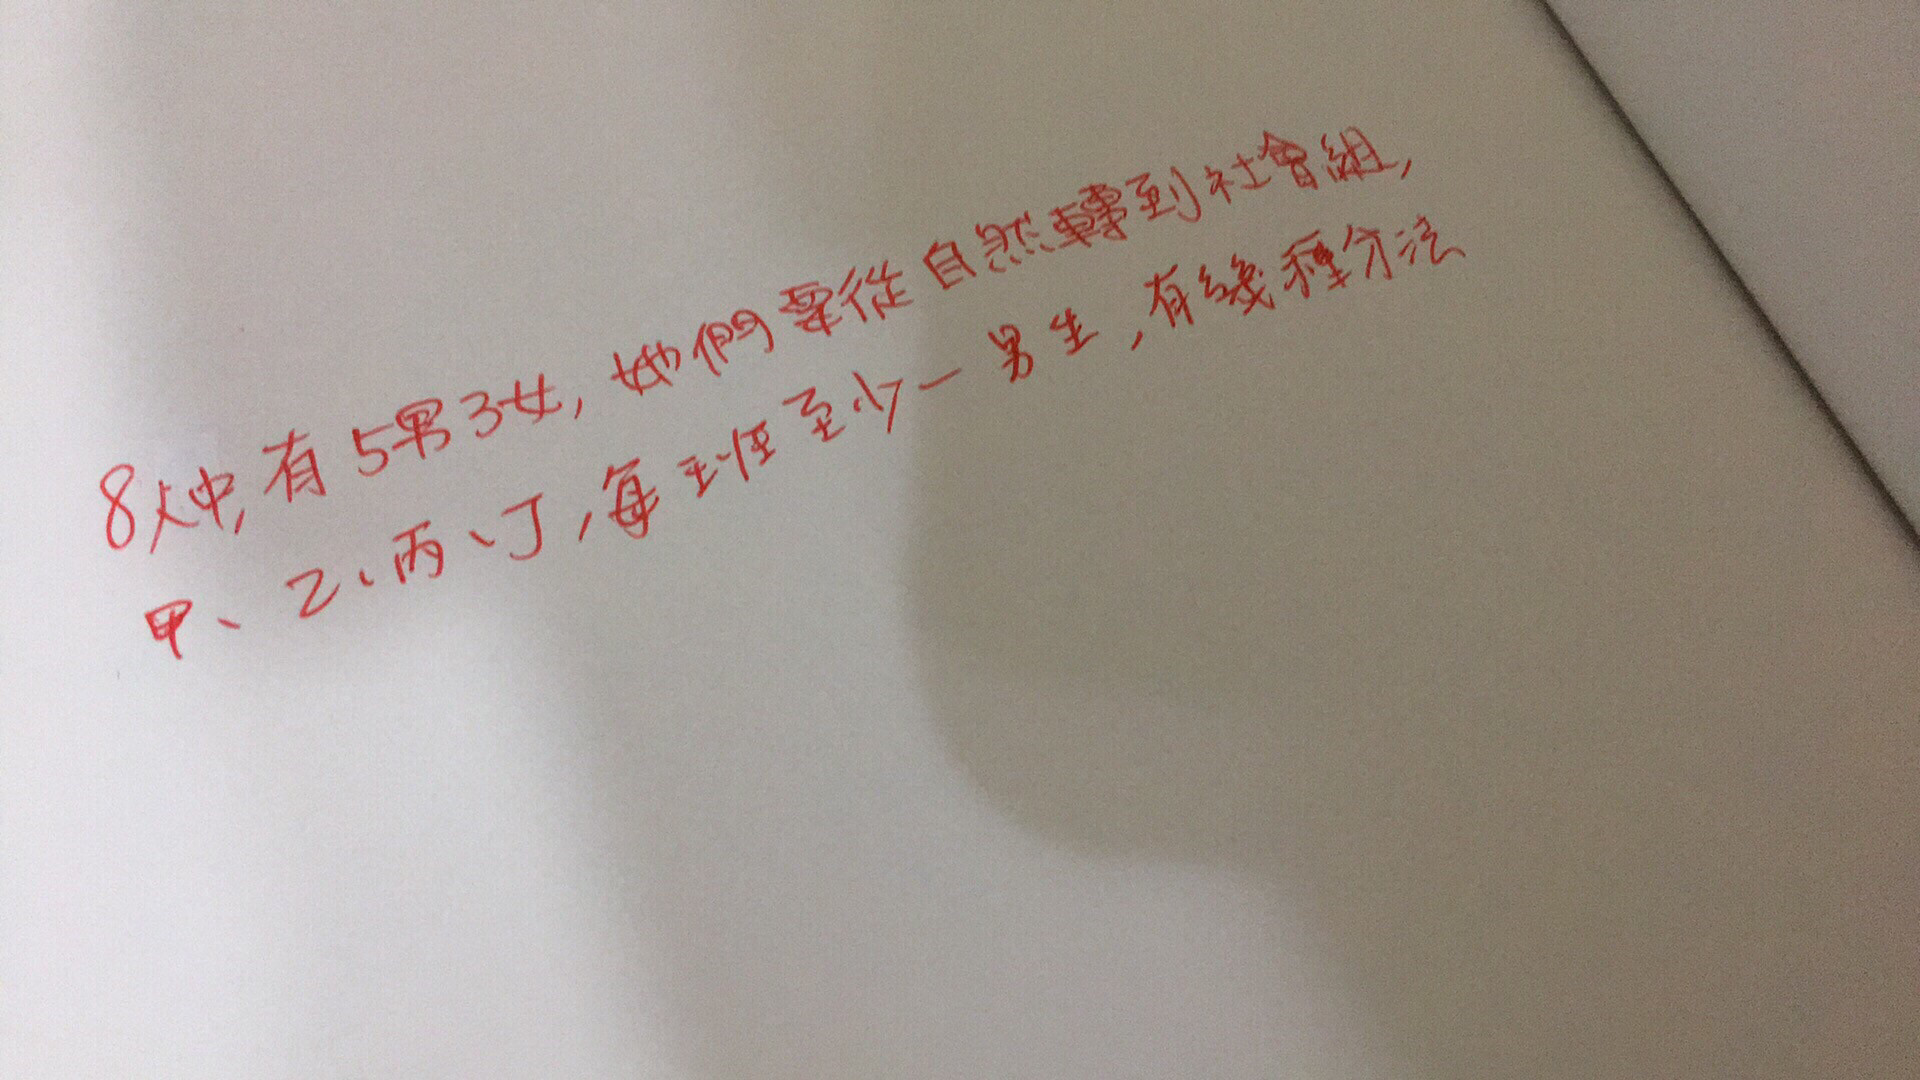 8人中,有5男3女,她們要從自然轉到社會組,
甲、乙、丙、丁,每班至少一男生,有幾種分法